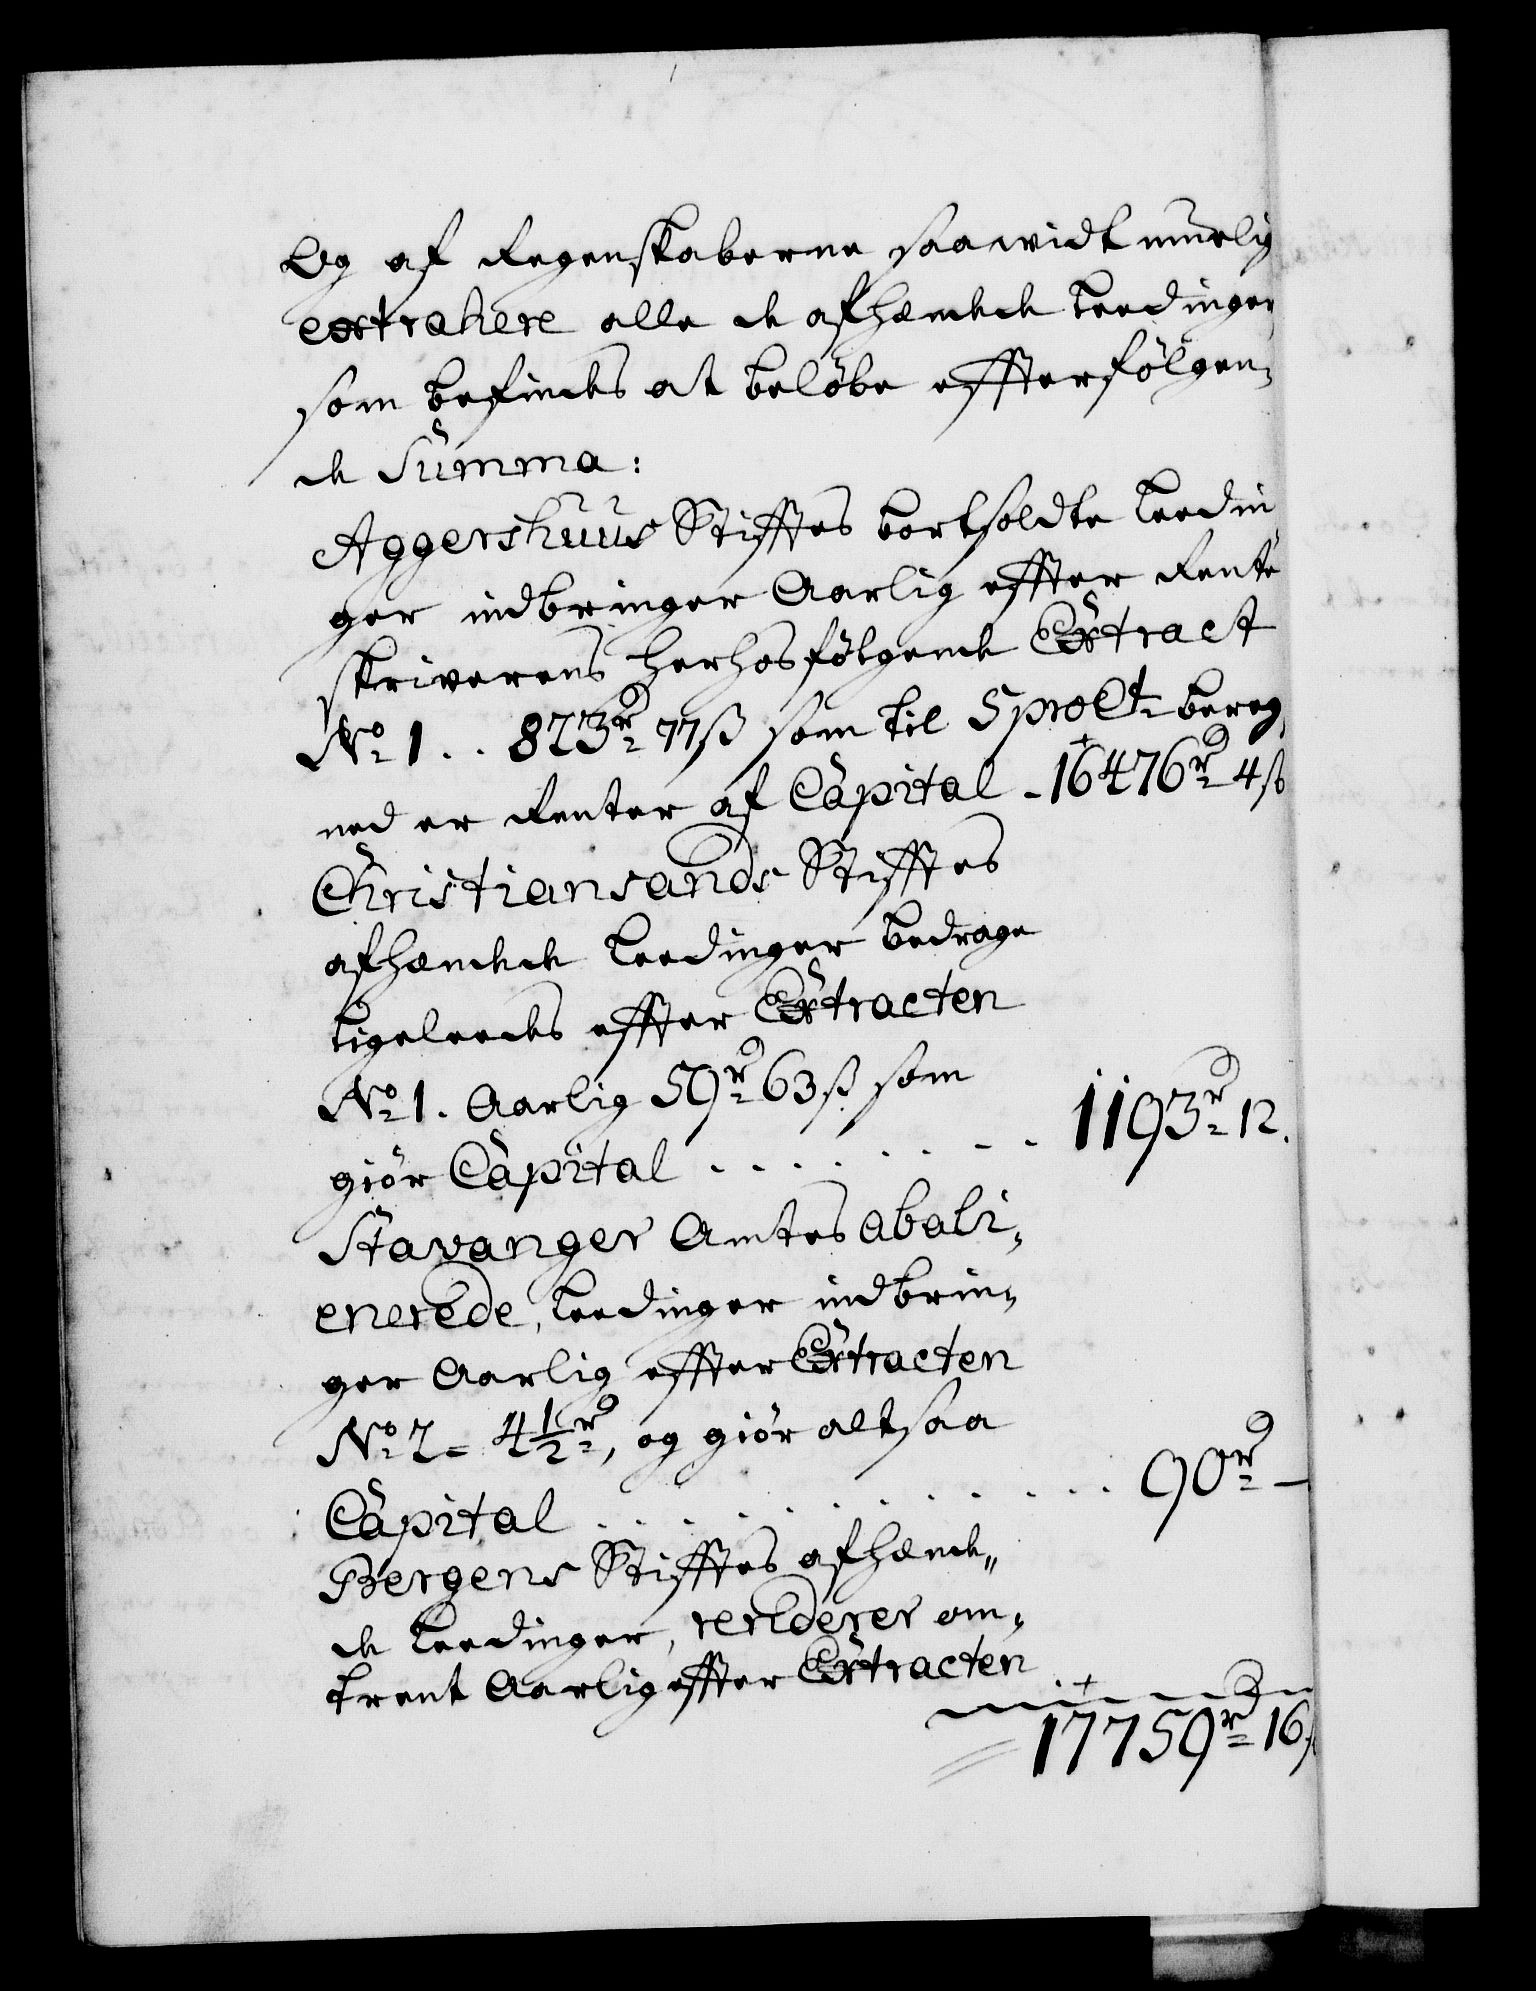 Og af Regenskaberne saa widt muelig
extrahere alle de afhændede Leedinger
som befindes at beløbe effterfølgen-
de Summa:
Aggershuus Stifftes bortsoldte Leedin
ger indbringer Aarlig effter Rente
skriverens herhos følgende Extract
No 1 . . 823 r 77 ß som til 5 pro Ct bereg,
ned er Renter af Capital - 16476 r 4 ß
Christiansands Stifftes
afhændede Leedinger bedrage
ligeleedes effter Extracten
No 1. Aarlig 59 r 63 ß som
giør Capital . . . . . . . . - - 1193 r 12.
Stavanger Amtes abali-
enerede, Leedinger indbrin-
ger Aarlig effter Extracten
No 2 = 4 1/2 r, og giør altsaa
Capital . . . . . . . . . . . . . 90 r —
Bergens Stifftes afhænde„
de Leedinger, renderer om-
trent Aarlig effter Extracten
17759 r 16 ß